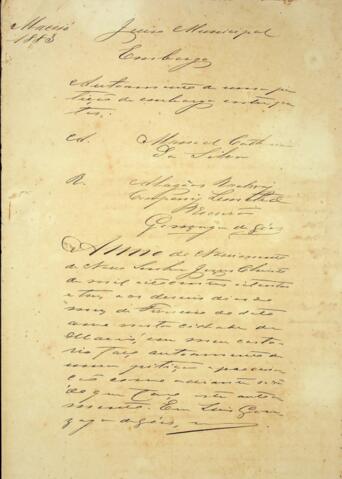 Maceió
1883
Juizo Municipal
Embargo
Autoamento de uma pe
tição de embargo entre par
tes.
A. Manoel
da Silva
R. Alagôas Railway
Company Limited
Gonzaga de Góes
Anno do Nascimento
de Nosso Senhor Jesus Christo
de mil oito centos e oitenta
e tres, aos dias do
mez de Fevereiro do dito
anno nesta cidade de
Maceió, em meu carto
rio faço autoamento de
uma petição e procura
ção como adiante se vê
do que faço este autoa
mento. Eu Luis Gon
zaga de Góes,